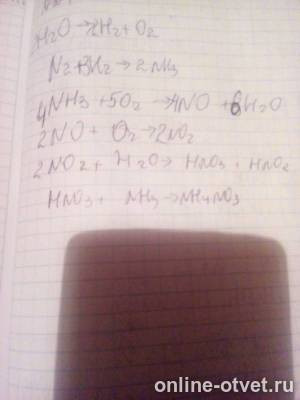 H2O → 2H2 + O2
N2 + 3H2 → 2NH3
4NH3 + 5O2 → 4NO + 6H2O
2NO + O2 → 2NO2
2NO2 + H2O → HNO3 + HNO2
HNO3 + NH3 → NH4NO3
online-otvet.ru